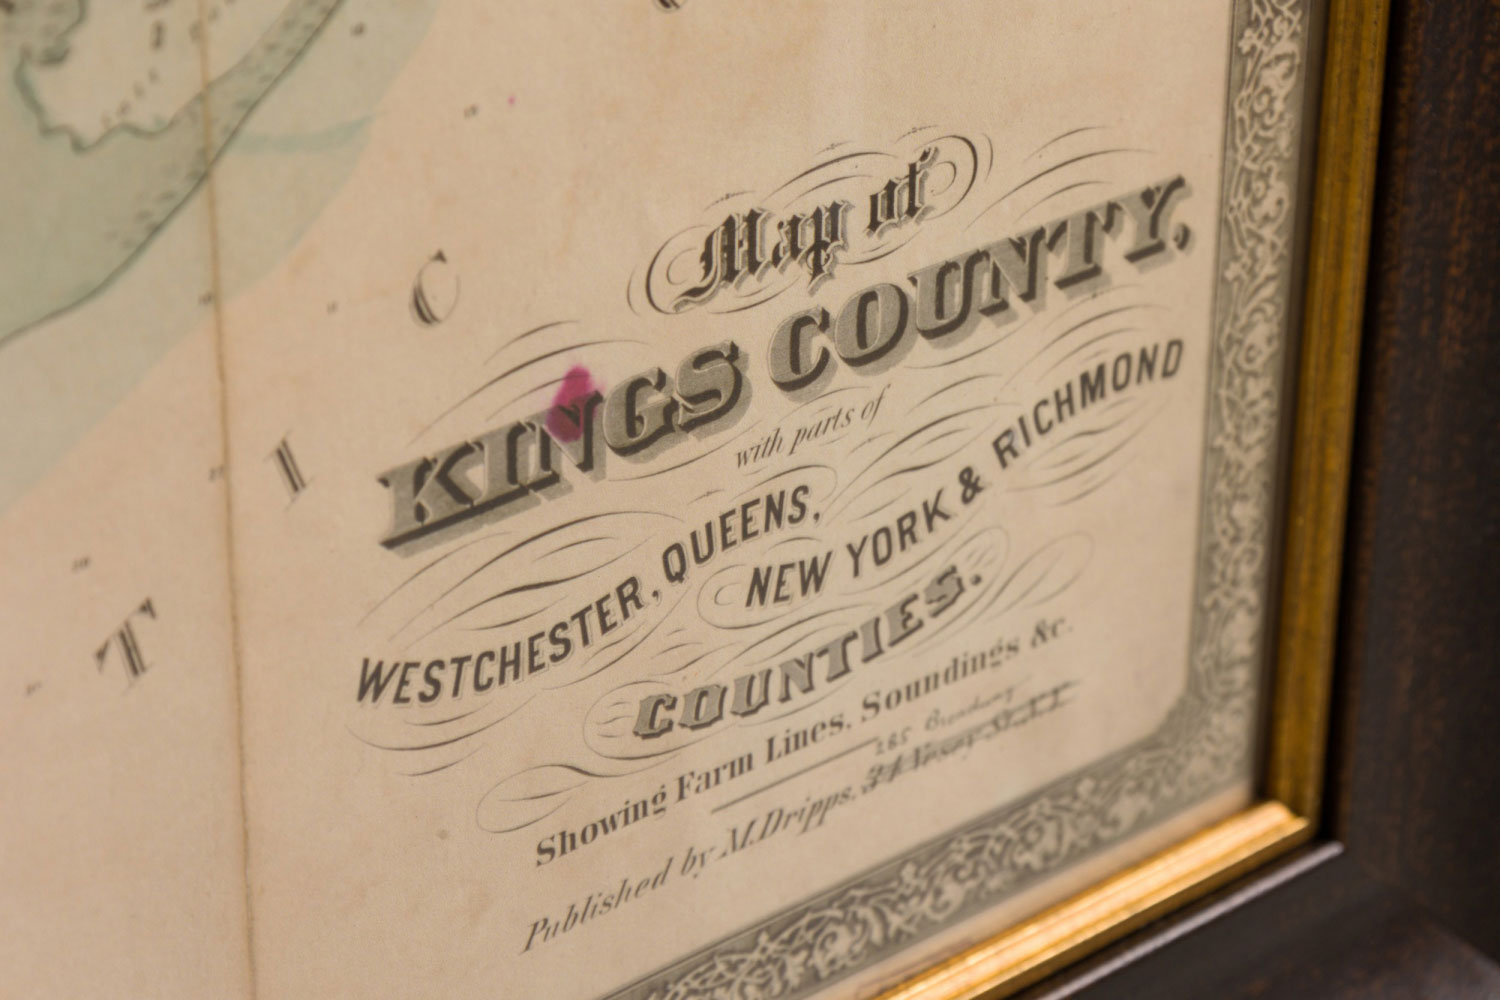 Map of
KINGS COUNTY,
with parts of
WESTCHESTER, QUEENS,
NEW YORK & RICHMOND
COUNTIES.
Showing Farm Lines, Soundings &c.
285 Broadway
Published by M. Dripps,
T I C